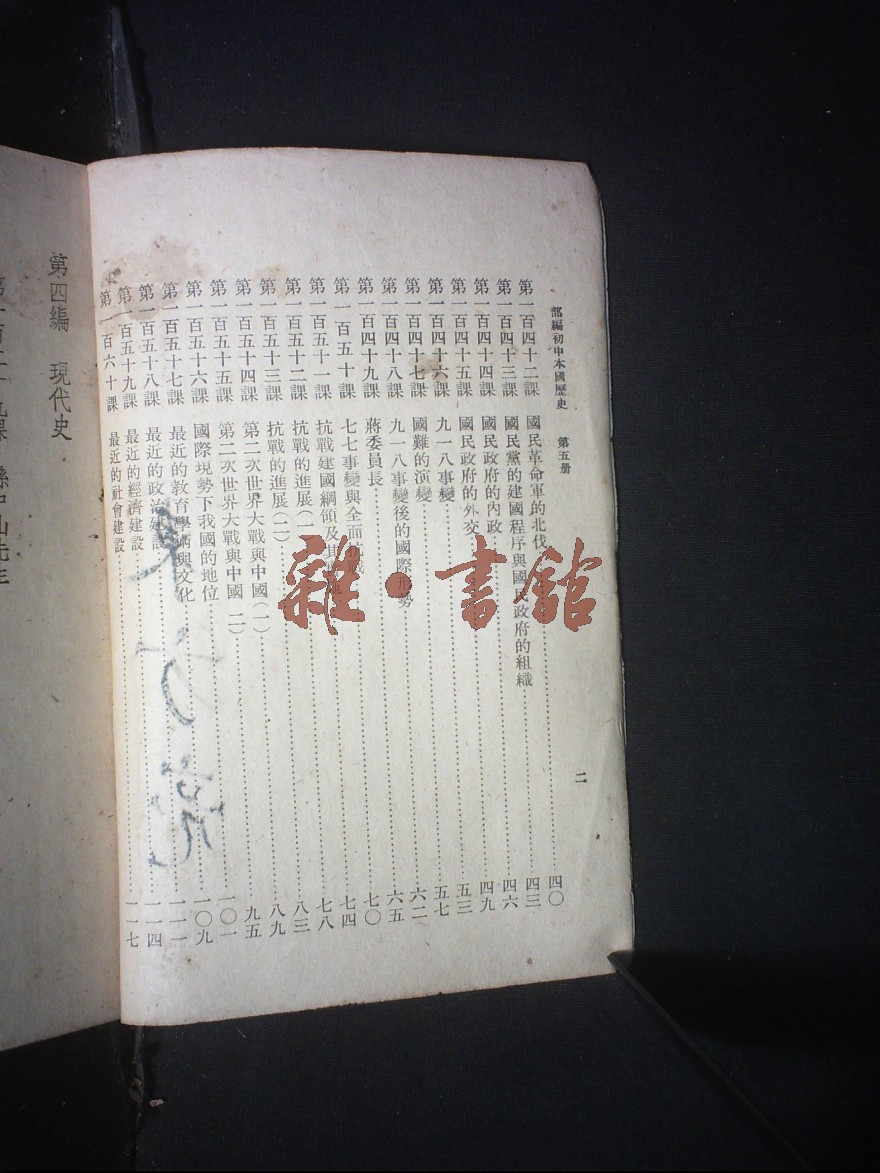 部編初中本國歷史 第五册 二
第一百四十二課 國民革命軍的北伐 四〇
第一百四十三課 國民黨的建國程序與國民政府的組織 四三
第一百四十四課 國民政府的內政 四六
第一百四十五課 國民政府的外交 四九
第一百四十六課 九一八事變 五三
第一百四十七課 國難的演變 五七
第一百四十八課 九一八事變後的國際形勢 六二
第一百四十九課 蔣委員長 六五
第一百五十課 七七事變與全面抗戰 七〇
第一百五十一課 抗戰建國綱領及其 七四
第一百五十二課 抗戰的進展(一) 七八
第一百五十三課 抗戰的進展(二) 八三
第一百五十四課 第二次世界大戰與中國(一) 八九
第一百五十五課 第二次世界大戰與中國(二) 九五
第一百五十六課 國際現勢下我國的地位 一〇一
第一百五十七課 最近的教育學術與文化 一〇九
第一百五十八課 最近的政治建設 一一一
第一百五十九課 最近的經濟建設 一一四
第一百六十課 最近的社會建設 一一七
第四編 現代史
雜·書館